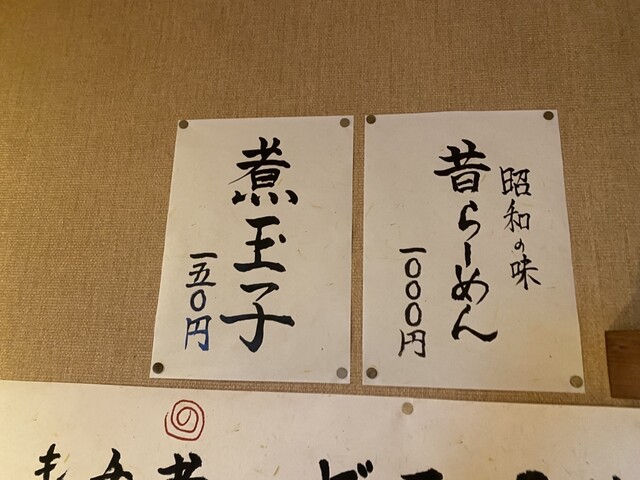 昭和の味
昔らーめん
一〇〇〇円
煮玉子
一五〇円